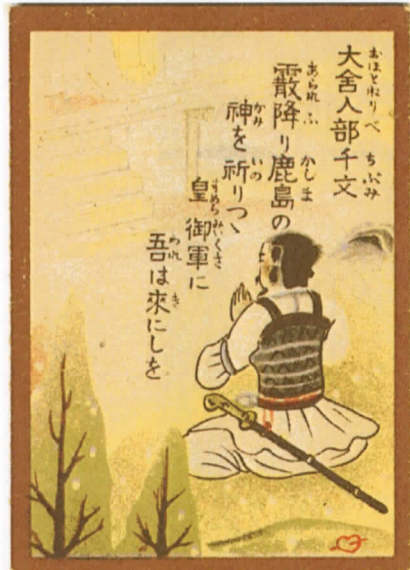 大舎人部千文
霰降り鹿島の
神を祈りつゝ
皇御軍に
吾は來にしを